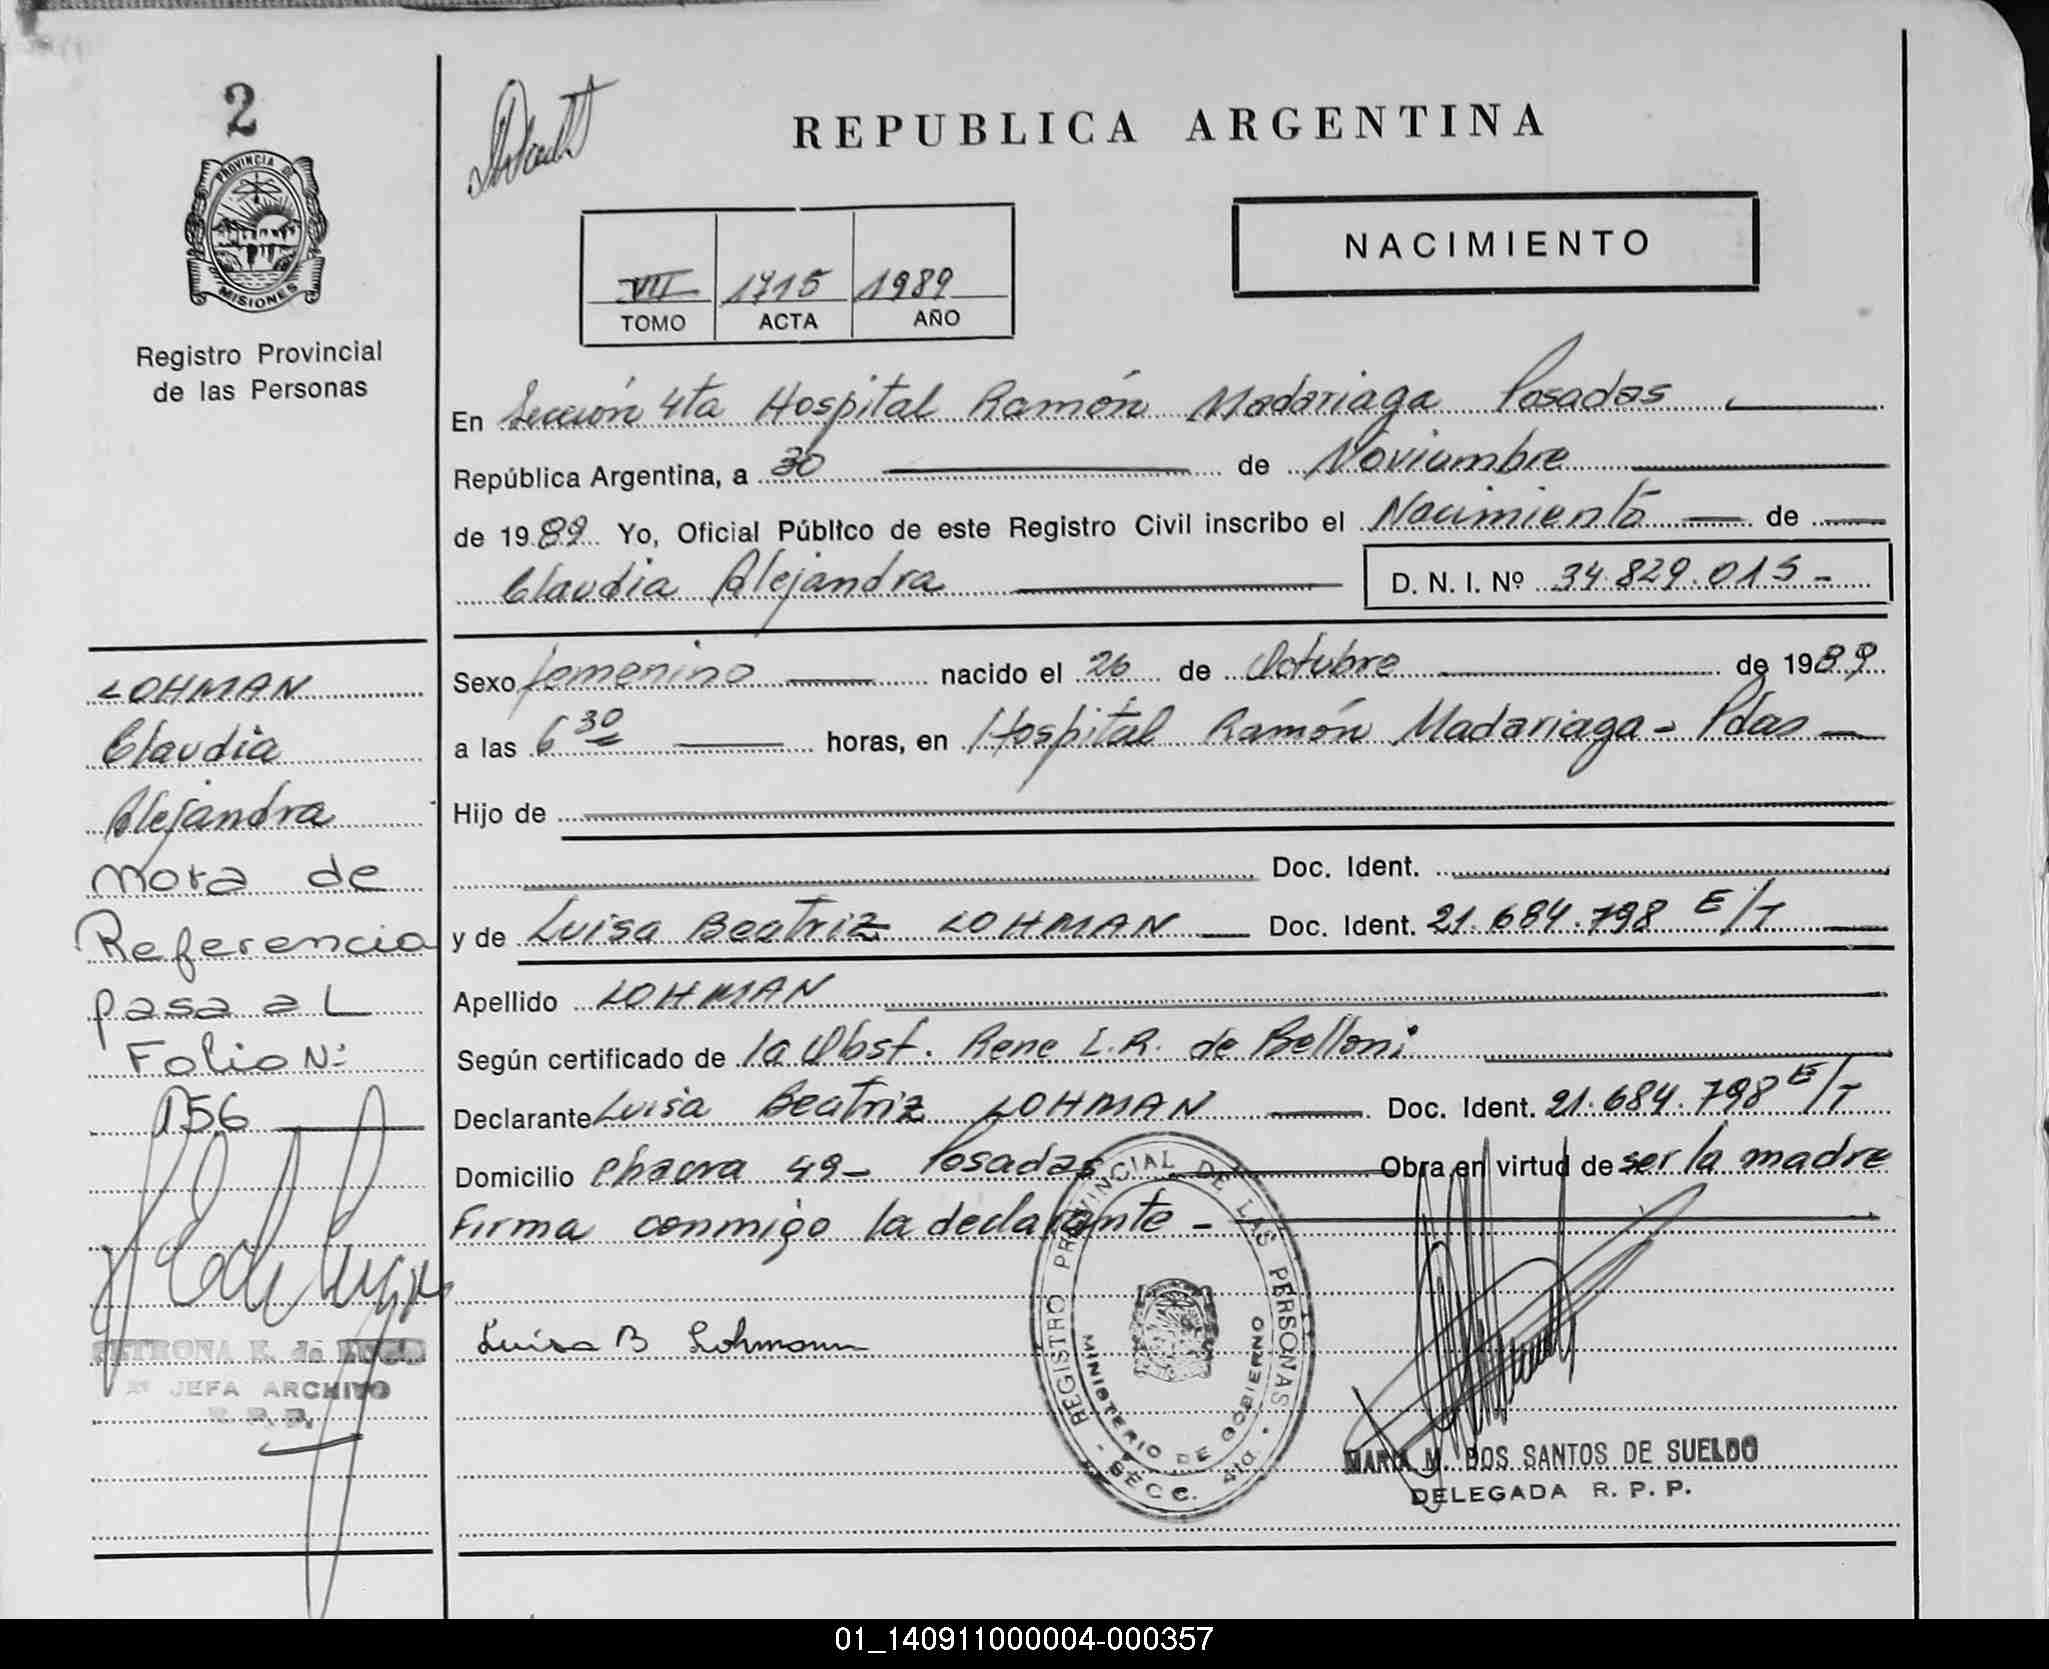 2
PROVINCIA DE
MISIONES
Registro Provincial
de las Personas
REPUBLICA ARGENTINA
NACIMIENTO
VII 1715 1989
TOMO ACTA AÑO
En Sección 4ta Hospital Ramón Madariaga Posadas
República Argentina, a 30 de Noviembre
de 1989 Yo, Oficial Público de este Registro Civil inscribo el Nacimiento de
Claudia Alejandra D. N. I. Nº 34.829.015-
Sexo femenino nacido el 26 de Octubre de 1989
a las 6 30 horas, en Hospital Ramón Madariaga - Pdas
Hijo de
Doc. Ident.
y de Luisa Beatriz LOHMAN Doc. Ident. 21.684.798 E/T
Apellido LOHMAN
Según certificado de la Obst. Rene L.R. de Belloni
Declarante Luisa Beatriz LOHMAN Doc. Ident. 21.684.798 E/T
Domicilio Chacra 49- Posadas Obra en virtud de ser la madre
Firma conmigo la declarante -
Luisa B Lohmann
REGISTRO PROVINCIAL DE LAS PERSONAS
MINISTERIO DE GOBIERNO
- SECC. 4ta. -
MARIA M. DOS SANTOS DE SUELDO
DELEGADA R. P. P.
LOHMAN
Claudia
Alejandra
Nota de
Referencia
pasa al
Folio Nº
156
PETRONA E. de
JEFA ARCHIVO
R. P. P.
01_140911000004-000357